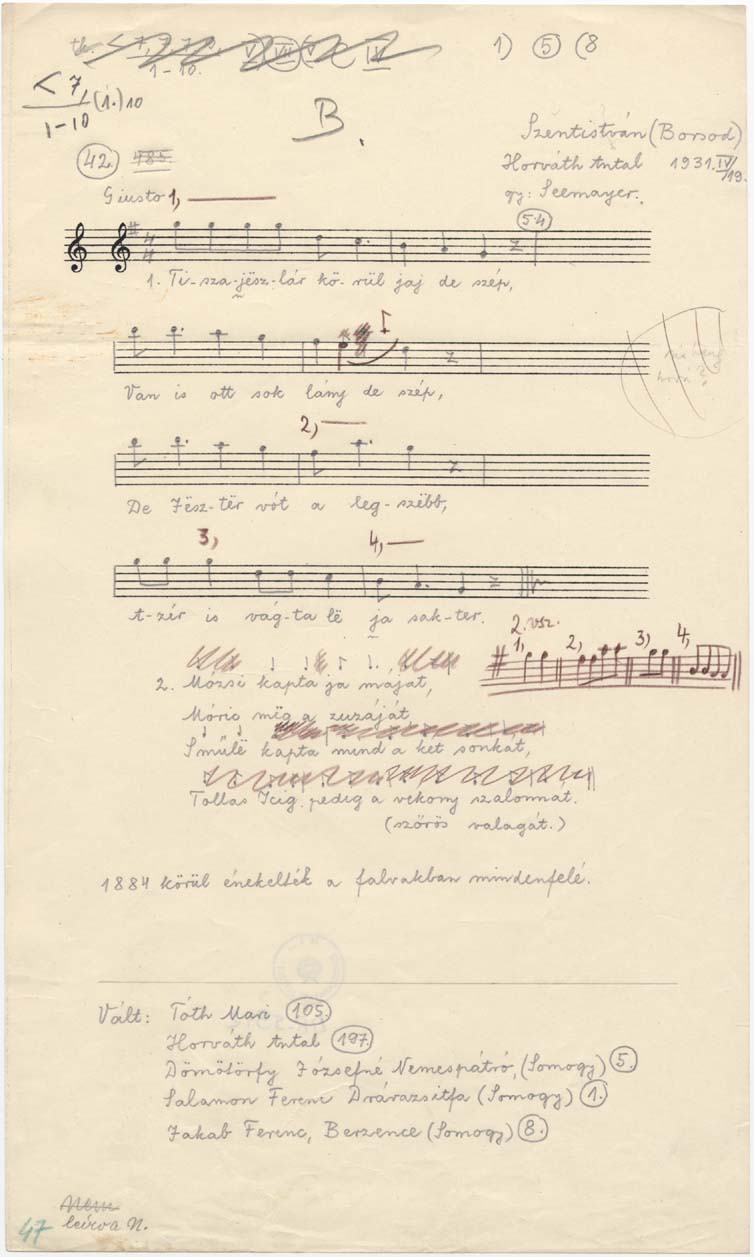 1) 5 (8
1-10.
< 7, (1.) 10
1-10
B.
Szentistván (Borsod)
42. 485.
Horváth Antal 1931. IV/19.
gy: Seemayer.
Giusto 1,
5.4
1. Ti-sza-jësz-lár kö-rül jaj de szép,
Van is ott sok lány de szép,
2,
De Jësz-tër vót a leg-szëbb,
3, 4,
A-zér is vág-ta lë ja sak-ter.
2. vsz.
1, 2, 3, 4,
2. Mózsi kapta ja máját,
Móric mëg a zuzáját
Smülë kapta mind a két sonkát,
Tollas Icig pedig a vékony szalonnát.
(szőrös valagát.)
1884 körül énekelték a falvakban mindenfelé.
Vált: Tóth Mari 105.
Horváth Antal 197.
Dömötörfy Józsefné Nemespátró, (Somogy) 5.
Salamon Ferenc Drávazsitfa (Somogy) 1.
Jakab Ferenc, Berzence (Somogy) 8.
Nem
47 leírva N.